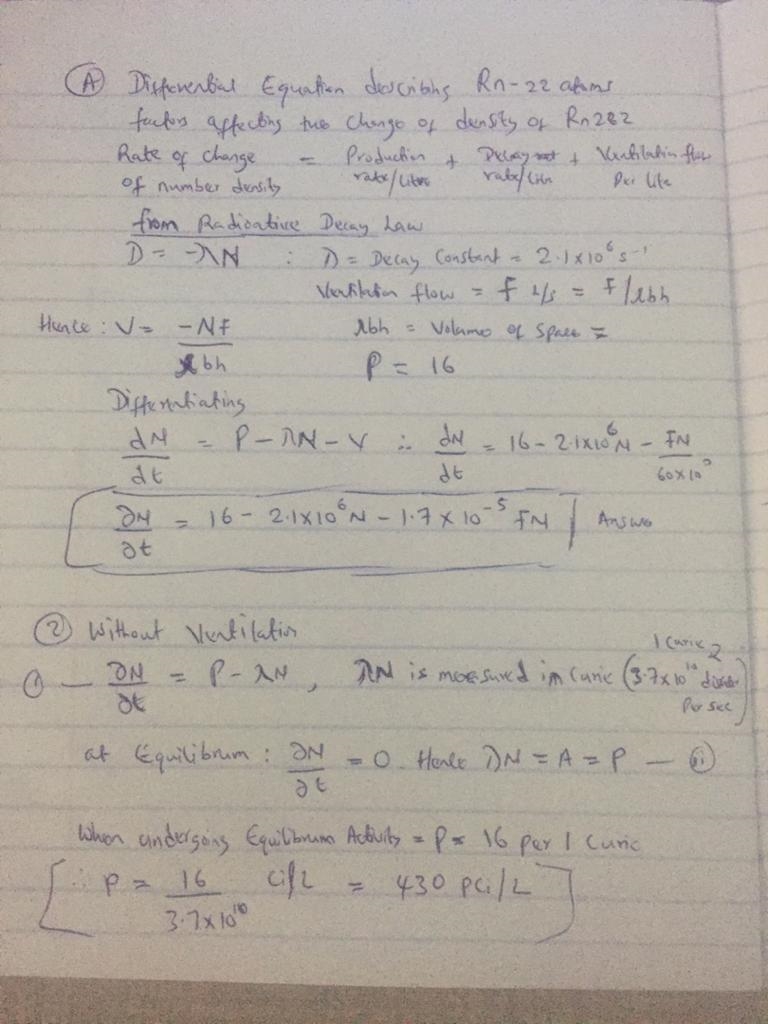 Ⓐ Differential Equation describing Rn-22 atoms
factors affecting the change of density of Rn222
Rate of change of number density = Production rate/Litre + Decay rate/Litre + Ventilation flow Per lite
from Radioative Decay Law
D = -λN : λ = Decay Constant = 2.1x10⁶ s⁻¹
Ventilation flow = f L/s = F/lbh
Hence : V = -Nf/lbh
lbh = Volume of Space =
P = 16
Differentiating
dN/dt = P - λN - V ∴ dN/dt = 16 - 2.1x10⁶N - FN/60x10³
∂N/∂t = 16 - 2.1x10⁶N - 1.7x10⁻⁵ FN
② Without Ventilation
① — ∂N/∂t = P - λN , λN is measured in Curie (3.7x10¹⁰ Per sec)
1 Curie
at Equilibrum : ∂N/∂t = 0. Hence λN = A = P — ⅱ
When undergoing Equilibrum Activity = P = 16 per 1 Curie
∴ P = 16/3.7x10¹⁰ Ci/L = 430 pCi/L